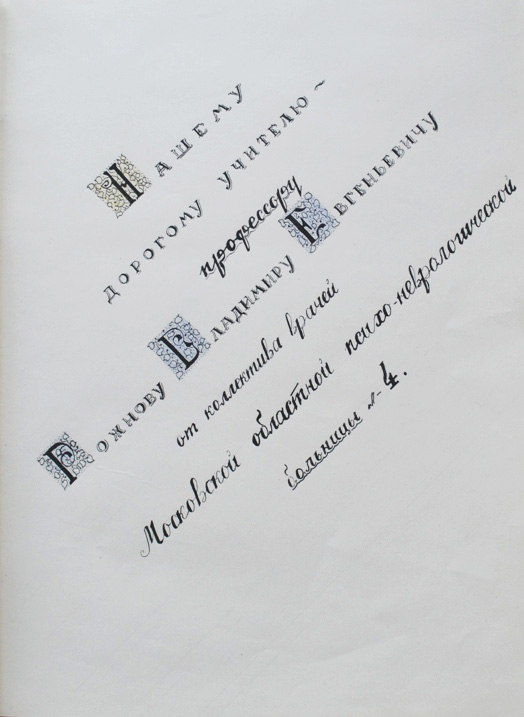 Нашему
дорогому учителю –
профессору
Рожнову Владимиру Евгеньевичу
от коллектива врачей
Московской областной психо-неврологической
больницы № 4.